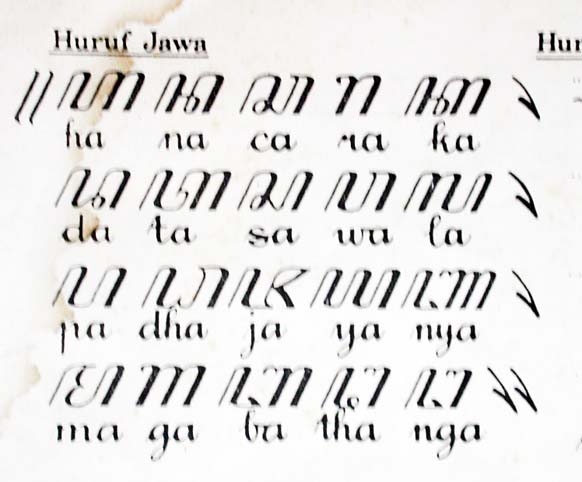 Huruf Jawa
Hur
꧋ꦲꦤꦕꦫꦏ꧈
ha na ca ra ka
ꦢꦠꦱꦮꦭ꧈
da ta sa wa la
ꦥꦝꦗꦪꦚ꧈
pa dha ja ya nya
ꦩꦒꦧꦛꦔ꧉
ma ga ba tha nga